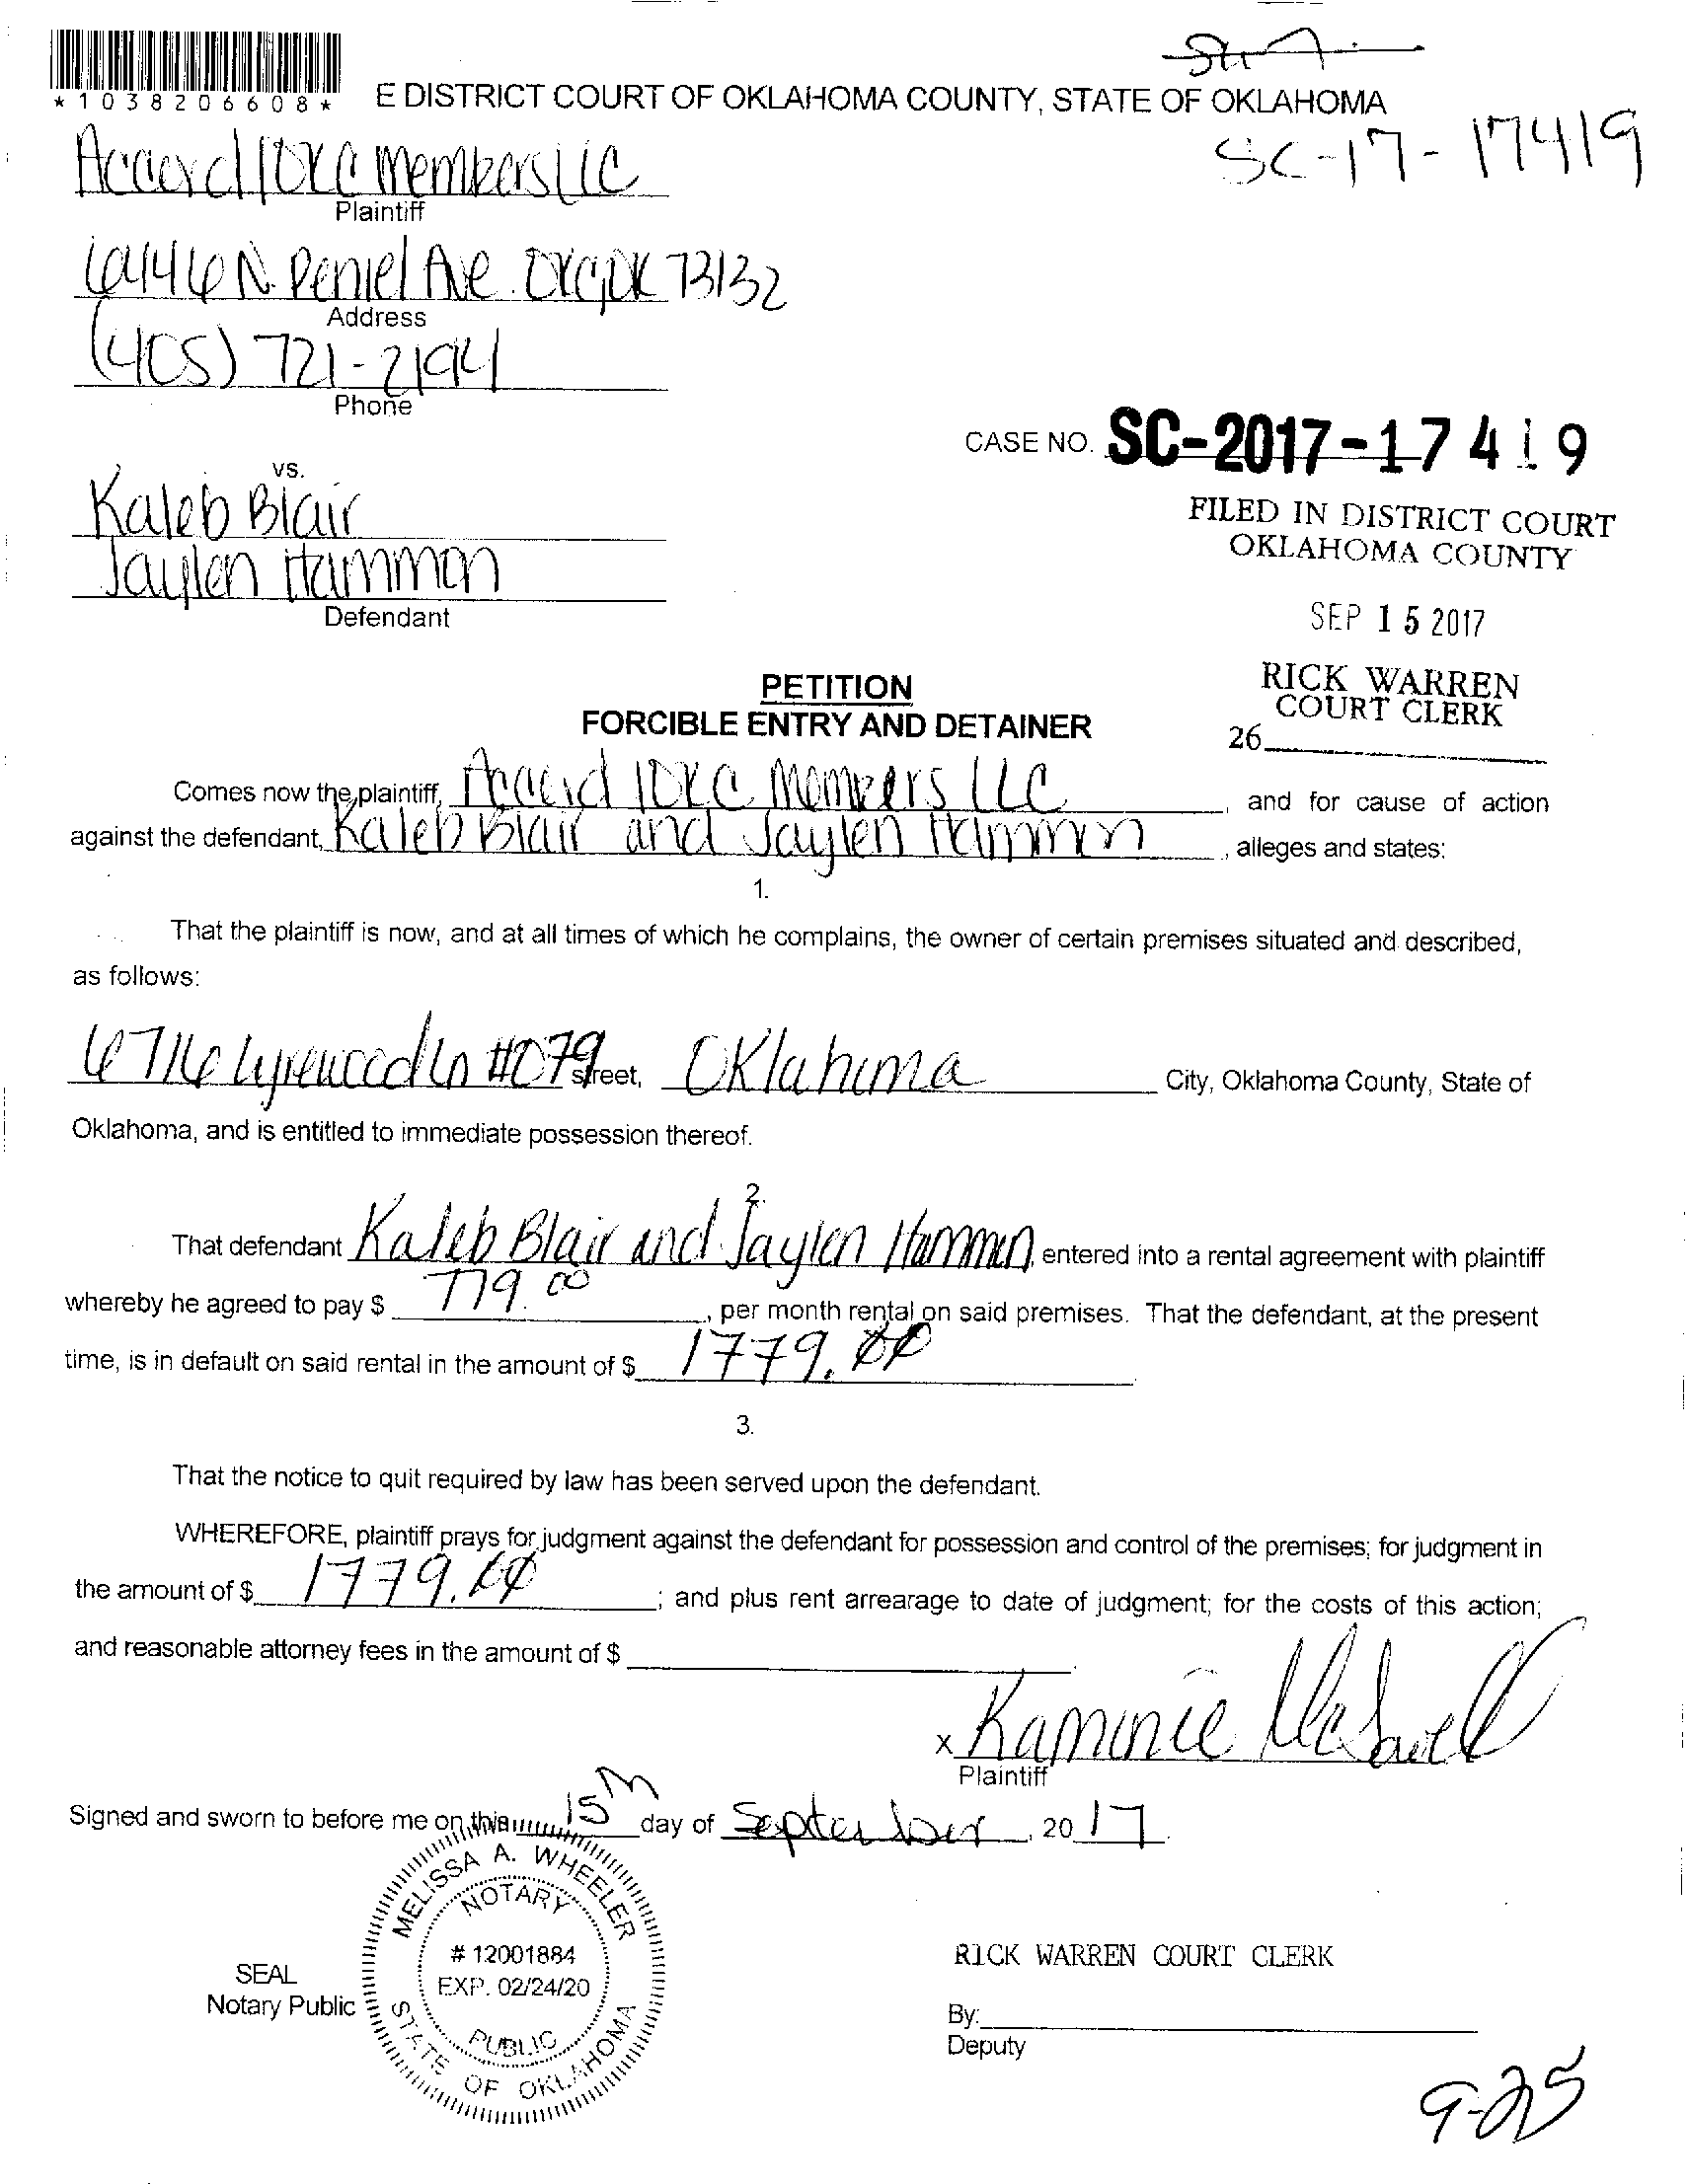 *1038206608*
E DISTRICT COURT OF OKLAHOMA COUNTY, STATE OF OKLAHOMA
SC-17-17419
Accord/OKC Members LLC
Plaintiff
6446 N. Peniel Ave. OKC, OK 73132
Address
(405) 721-2194
Phone
CASE NO. SC-2017-17419
vs.
Kaleb Blair
FILED IN DISTRICT COURT
OKLAHOMA COUNTY
Jaylen Hammon
Defendant
SEP 15 2017
RICK WARREN
COURT CLERK
26
PETITION
FORCIBLE ENTRY AND DETAINER
Comes now the plaintiff, Accord/OKC Members LLC, and for cause of action
against the defendant, Kaleb Blair and Jaylen Hammon, alleges and states:
1.
That the plaintiff is now, and at all times of which he complains, the owner of certain premises situated and described,
as follows:
6716 Lyrewood Ln #079 street, Oklahoma City, Oklahoma County, State of
Oklahoma, and is entitled to immediate possession thereof.
2.
That defendant Kaleb Blair and Jaylen Hammon, entered into a rental agreement with plaintiff
whereby he agreed to pay $ 779.00, per month rental on said premises. That the defendant, at the present
time, is in default on said rental in the amount of $ 1779.00
3.
That the notice to quit required by law has been served upon the defendant.
WHEREFORE, plaintiff prays for judgment against the defendant for possession and control of the premises; for judgment in
the amount of $ 1779.00; and plus rent arrearage to date of judgment; for the costs of this action;
and reasonable attorney fees in the amount of $
x Kammie
Plaintiff
Signed and sworn to before me on this 15th day of September, 2017
MELISSA A. WHEELER
NOTARY
# 12001884
EXP. 02/24/20
PUBLIC
STATE OF OKLAHOMA
SEAL
Notary Public
RICK WARREN COURT CLERK
By:
Deputy
9-25